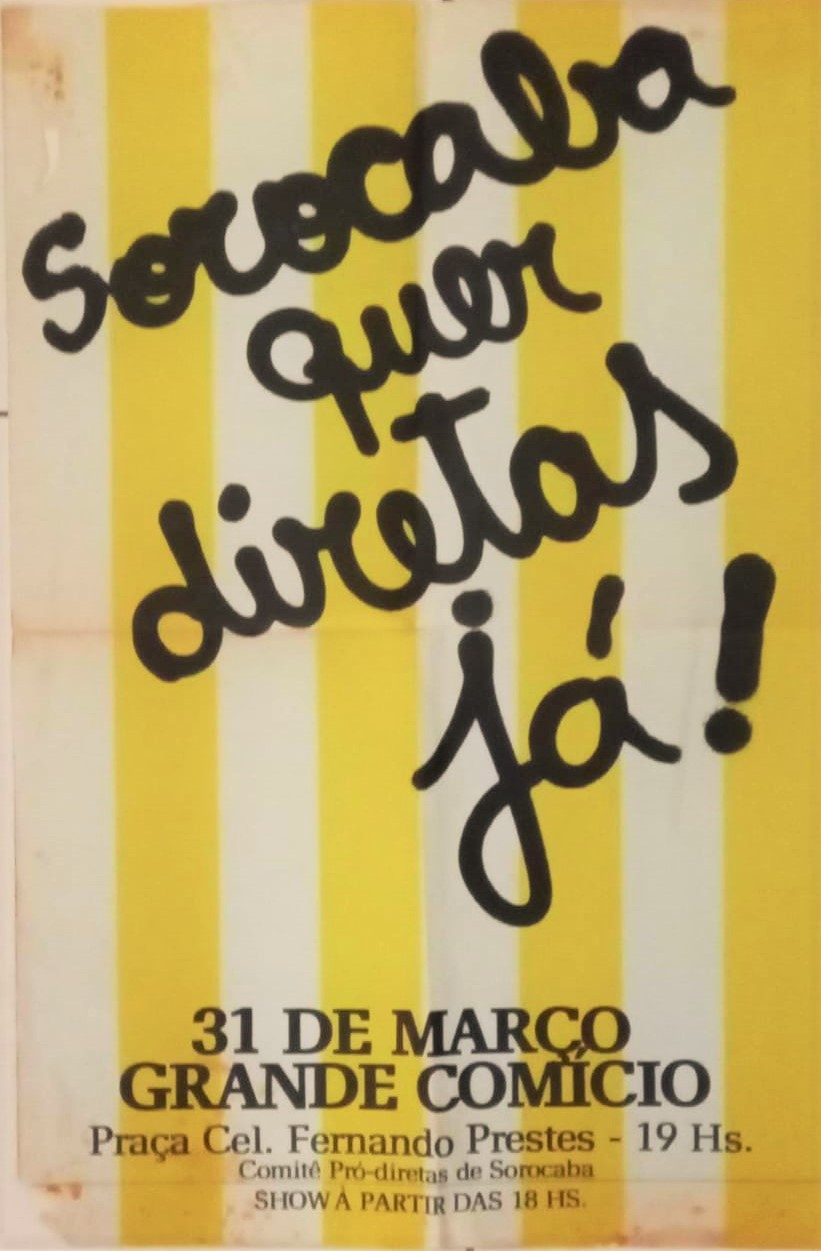 Sorocaba
quer
diretas
já!
31 DE MARÇO
GRANDE COMÍCIO
Praça Cel. Fernando Prestes - 19 Hs.
Comitê Pró-diretas de Sorocaba
SHOW À PARTIR DAS 18 HS.